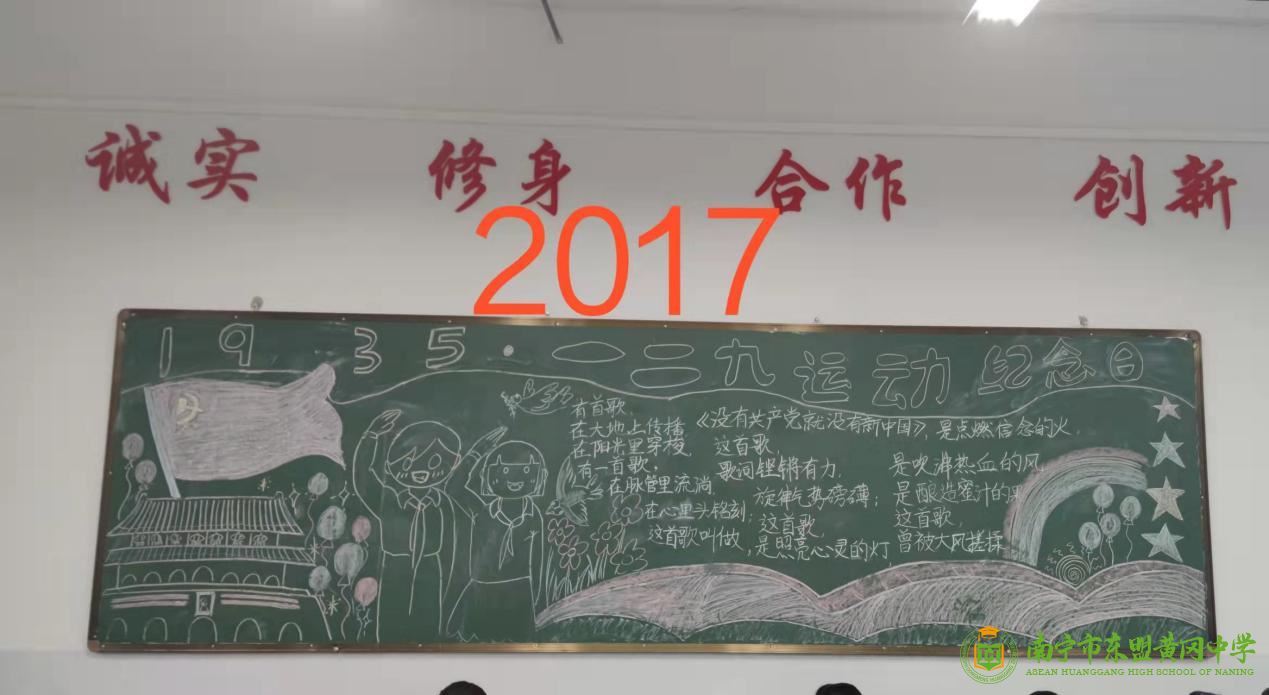 诚实 修身 合作 创新
2017
1935·一二九运动纪念日
有首歌
在大地上传播
在阳光里穿梭
有一首歌,
在脉管里流淌
在心里头铭刻;
这首歌叫做
《没有共产党就没有新中国》,
这首歌,
歌词铿锵有力,
旋律气势磅礴;
这首歌,
是照亮心灵的灯
是点燃信念的火,
是吹沸热血的风
是酿造蜜汁的果
这首歌,
曾被大风搓揉
南宁市东盟黄冈中学
ASEAN HUANGGANG HIGH SCHOOL OF NANING